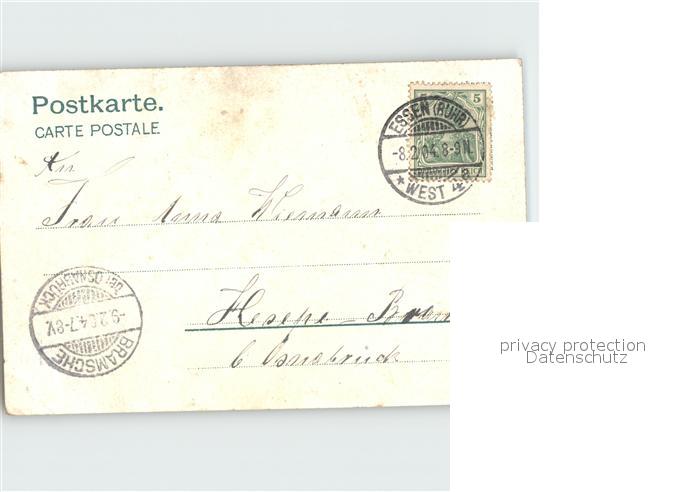 Postkarte.
CARTE POSTALE
5
ESSEN (RUHR)
-8.2.04.8-9N.
* WEST 4a
An
Frau Anna Wiemann
BRAMSCHE
-9.2.04.7-8V.
(BZ. OSNABRÜCK)
Hesepe-Bram
b/Osnabrück
privacy protection
Datenschutz